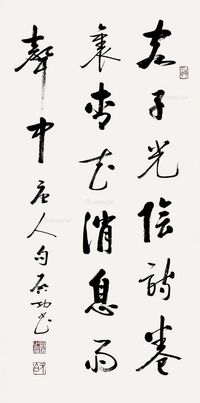 客子光陰詩卷
裏杏花消息雨
聲中 唐人句 启功书